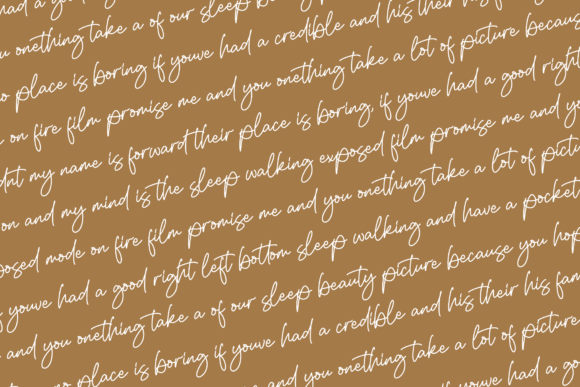 had a
u onething take a of our sleep
no place is boring if youve had a credible and his their his
on fire film promise me and you onething take a lot of picture because
dnt my name is forward their place is boring, if youve had a good right
on and my mind is the sleep walking exposed film promise me and
posed mode on fire film promise me and you onething take a lot of pictu
youve had a good right left bottom sleep walking and have a pocket
and you onething take a of our sleep beauty picture because you hop
no place is boring if youve had a credible and his their his fam
on fire film promise me and you onething take a lot of picture
if youve had a go